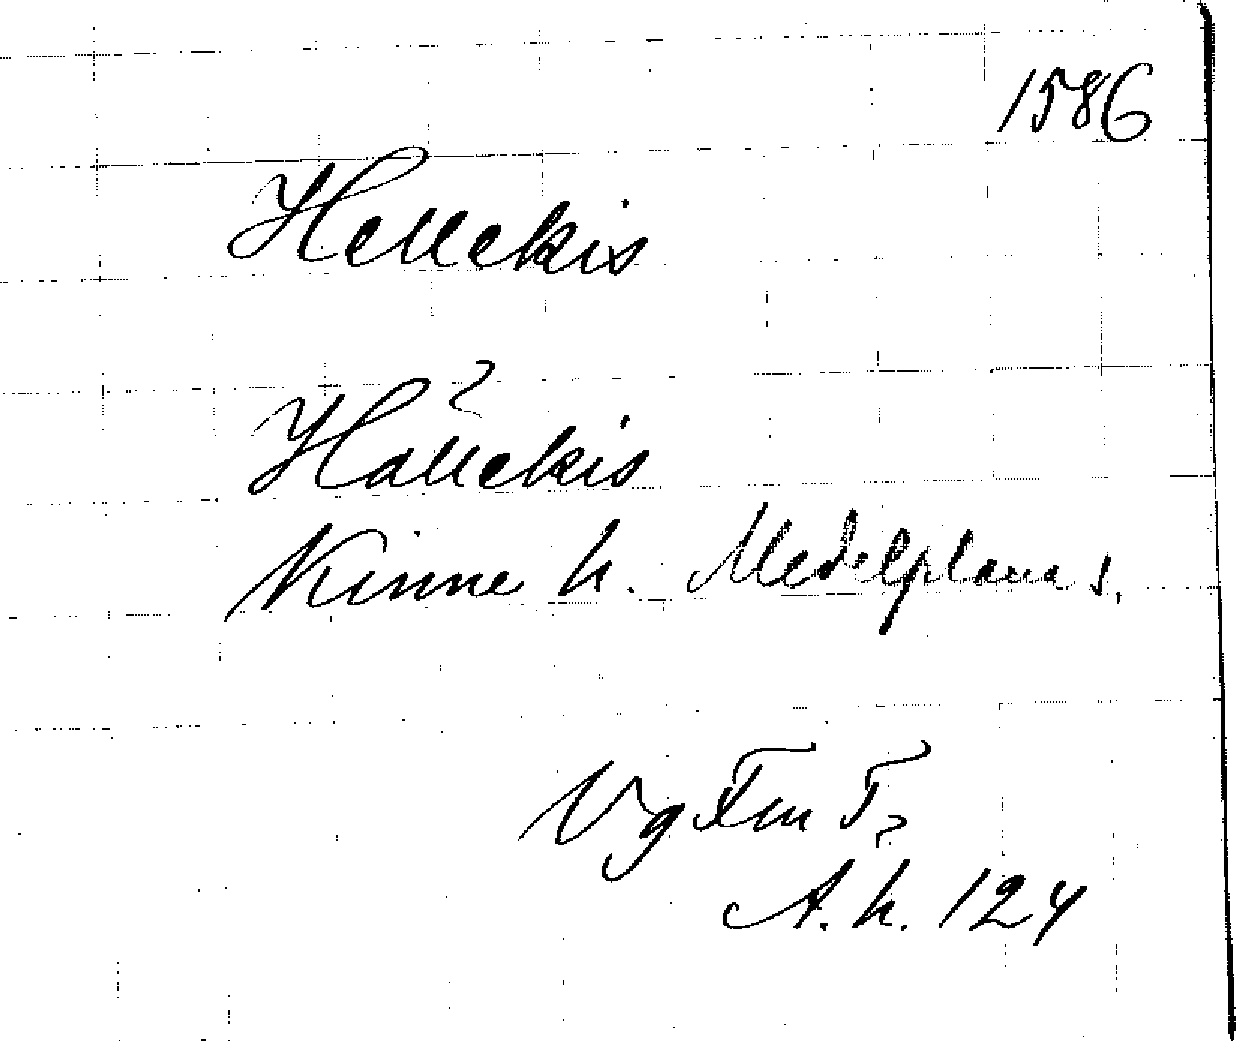 1586
Hellekis
?
Hällekis
Kinne h. Medelplana s.
Vg
A.h. 124